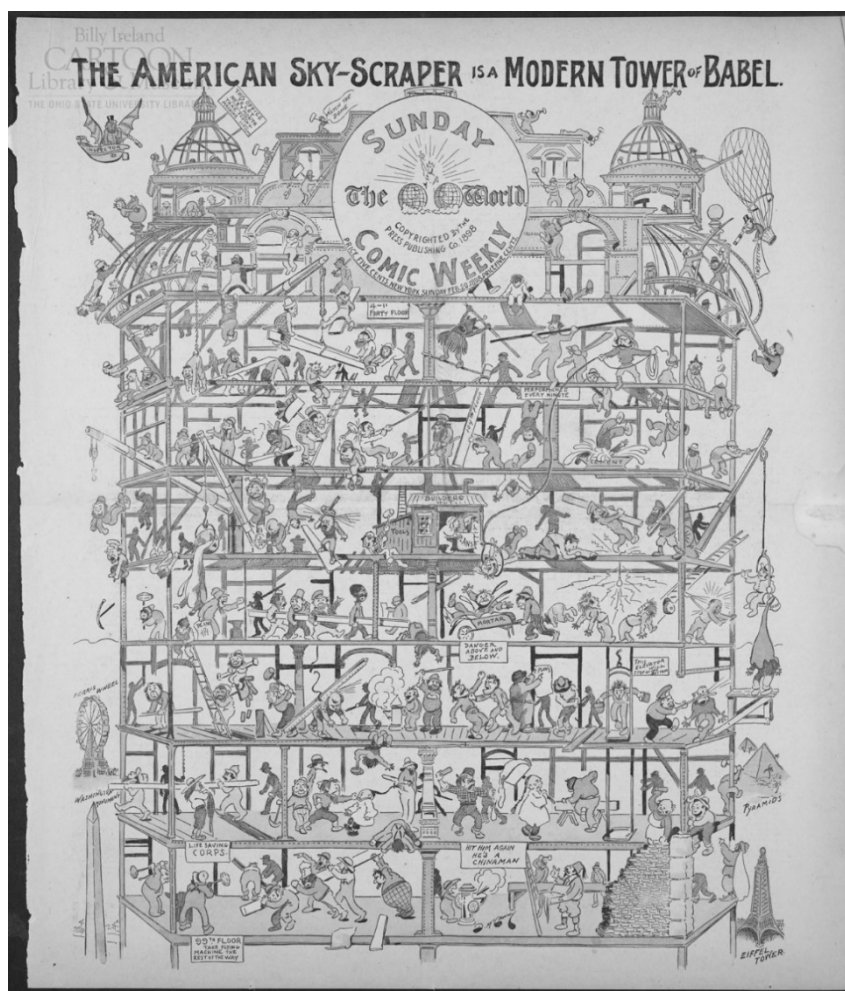 Billy Ireland
CARTOON
Library & Museum
THE OHIO STATE UNIVERSITY LIBRARIES
THE AMERICAN SKY-SCRAPER IS A MODERN TOWER OF BABEL.
SUNDAY
The World
COPYRIGHTED BY THE
PRESS PUBLISHING CO. 1898
COMIC WEEKLY
PRICE FIVE CENTS NEW YORK SUNDAY FEB. 20
4-11
FORTY FLOOR
PERFORMANCE
EVERY MINUTE
CEMENT
BUILDERS
TOOLS
MORTAR
DANGER
ABOVE AND
BELOW.
FERRIS WHEEL
WASHINGTON MONUMENT
PYRAMIDS
LIFE SAVING
CORPS.
HIT HIM AGAIN
HE'S A
CHINAMAN
99TH FLOOR
REST OF THE WAY
EIFFEL
TOWER.